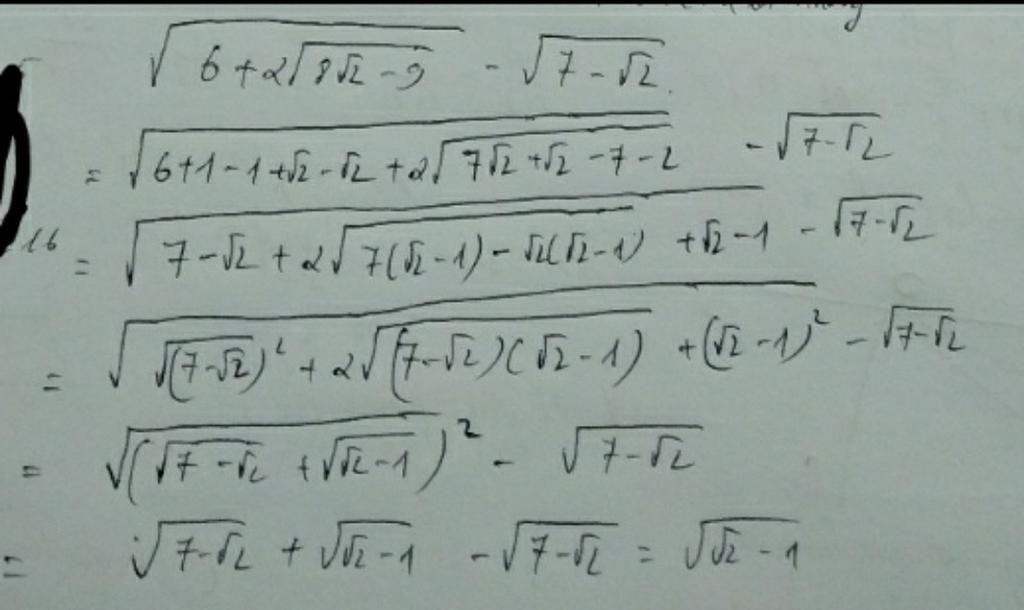 √(6+2√(8√2-9)) - √(7-√2)
= √(6+1-1+√2-√2+2√(7√2+√2-7-2)) - √(7-√2)
16 = √(7-√2+2√(7(√2-1)-√2(√2-1))+√2-1) - √(7-√2)
= √(√(7-√2)²+2√((7-√2)(√2-1))+(√2-1)²) - √(7-√2)
= √((√(7-√2)+√(√2-1))²) - √(7-√2)
= √(7-√2)+√(√2-1) - √(7-√2) = √(√2-1)